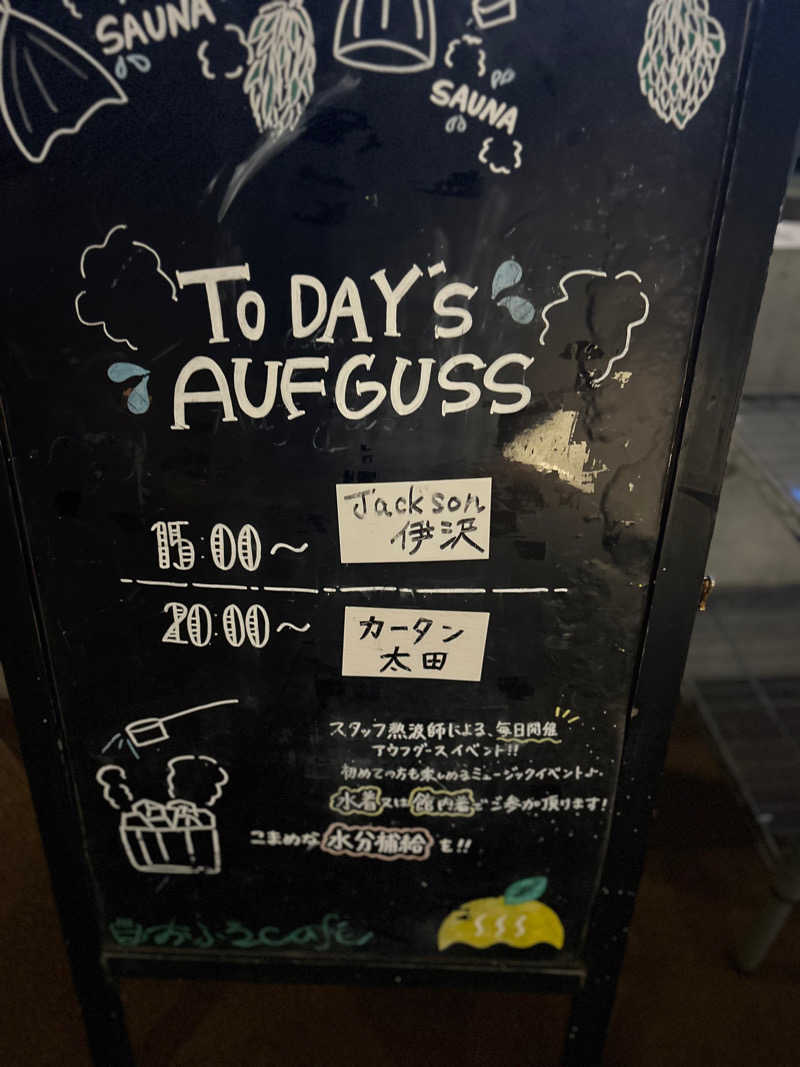 SAUNA
SAUNA
TODAY'S
AUFGUSS
15:00〜
Jackson
伊沢
20:00〜
カータン
太田
スタッフ熱波師による、毎日開催
アウフグースイベント!!
初めての方も楽しめるミュージックイベント♪
水着又は館内着でご参加頂けます!
こまめな水分補給を!!
おふろcafe